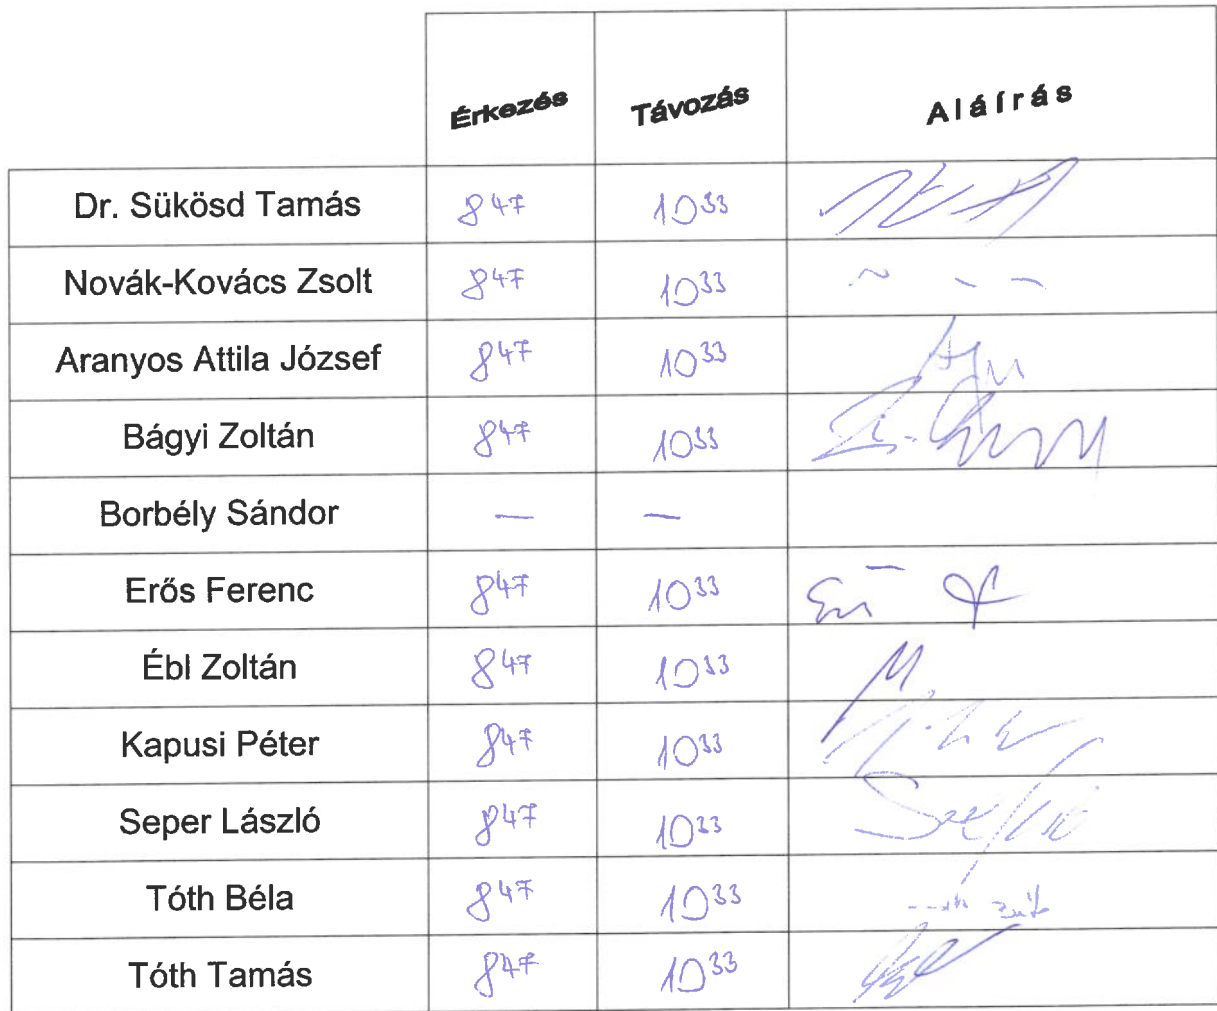 Érkezés Távozás Aláírás
Dr. Sükösd Tamás 8⁴⁷ 10³³
Novák-Kovács Zsolt 8⁴⁷ 10³³
Aranyos Attila József 8⁴⁷ 10³³
Bágyi Zoltán 8⁴⁷ 10³³
Borbély Sándor — —
Erős Ferenc 8⁴⁷ 10³³
Ébl Zoltán 8⁴⁷ 10³³
Kapusi Péter 8⁴⁷ 10³³
Seper László 8⁴⁷ 10³³
Tóth Béla 8⁴⁷ 10³³
Tóth Tamás 8⁴⁷ 10³³